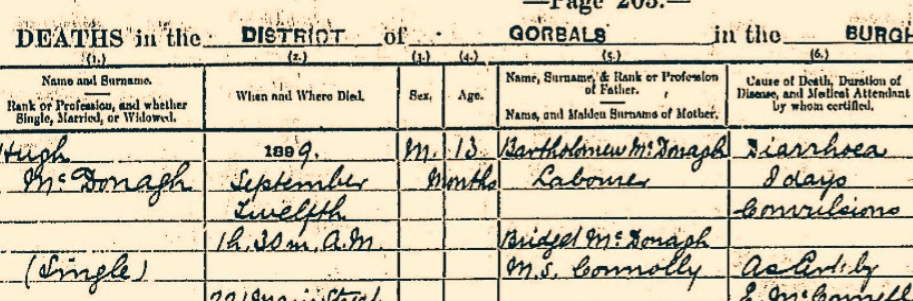 —Page 203.—
DEATHS in the DISTRICT of GORBALS in the BURGH
(1.) (2.) (3.) (4.) (5.) (6.)
Name and Surname.
Rank or Profession, and whether Single, Married, or Widowed.
When and Where Died.
Sex.
Age.
Name, Surname, & Rank or Profession of Father.
Name, and Maiden Surname of Mother.
Cause of Death, Duration of Disease, and Medical Attendant by whom certified.
Hugh 1889. M. 13 Bartholomew McDonagh Diarrhoea
McDonagh September Months Labourer 8 days
Twelfth Convulsions
1h. 30m. A.M. Bridget McDonagh
(Single) M.S. Connolly As Cert. by
Main Street E. McConnell